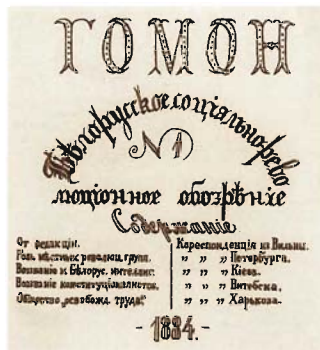 ГОМОН
Бѣлорусское соціяльно-рево
№ 1
люціонное обозрѣніе
Содержаніе
От редакціи.
Гол. мѣстных революц. групп.
Воззваніе к Бѣлорус. интеллиг.
Воззваніе конституціоналистов.
Общество „освобожд. труда"
Кореспонденція из Вильны.
" " " Петербурга.
" " " Кіева.
" " " Витебска.
" " " Харькова.
- 1884. -